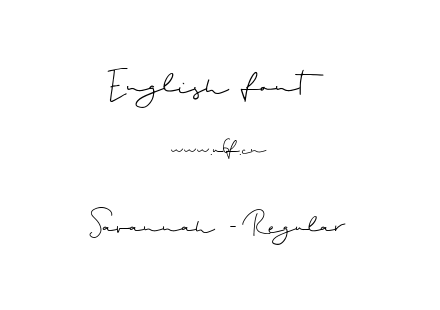 English font
www.nff.cn
Savannah -Regular